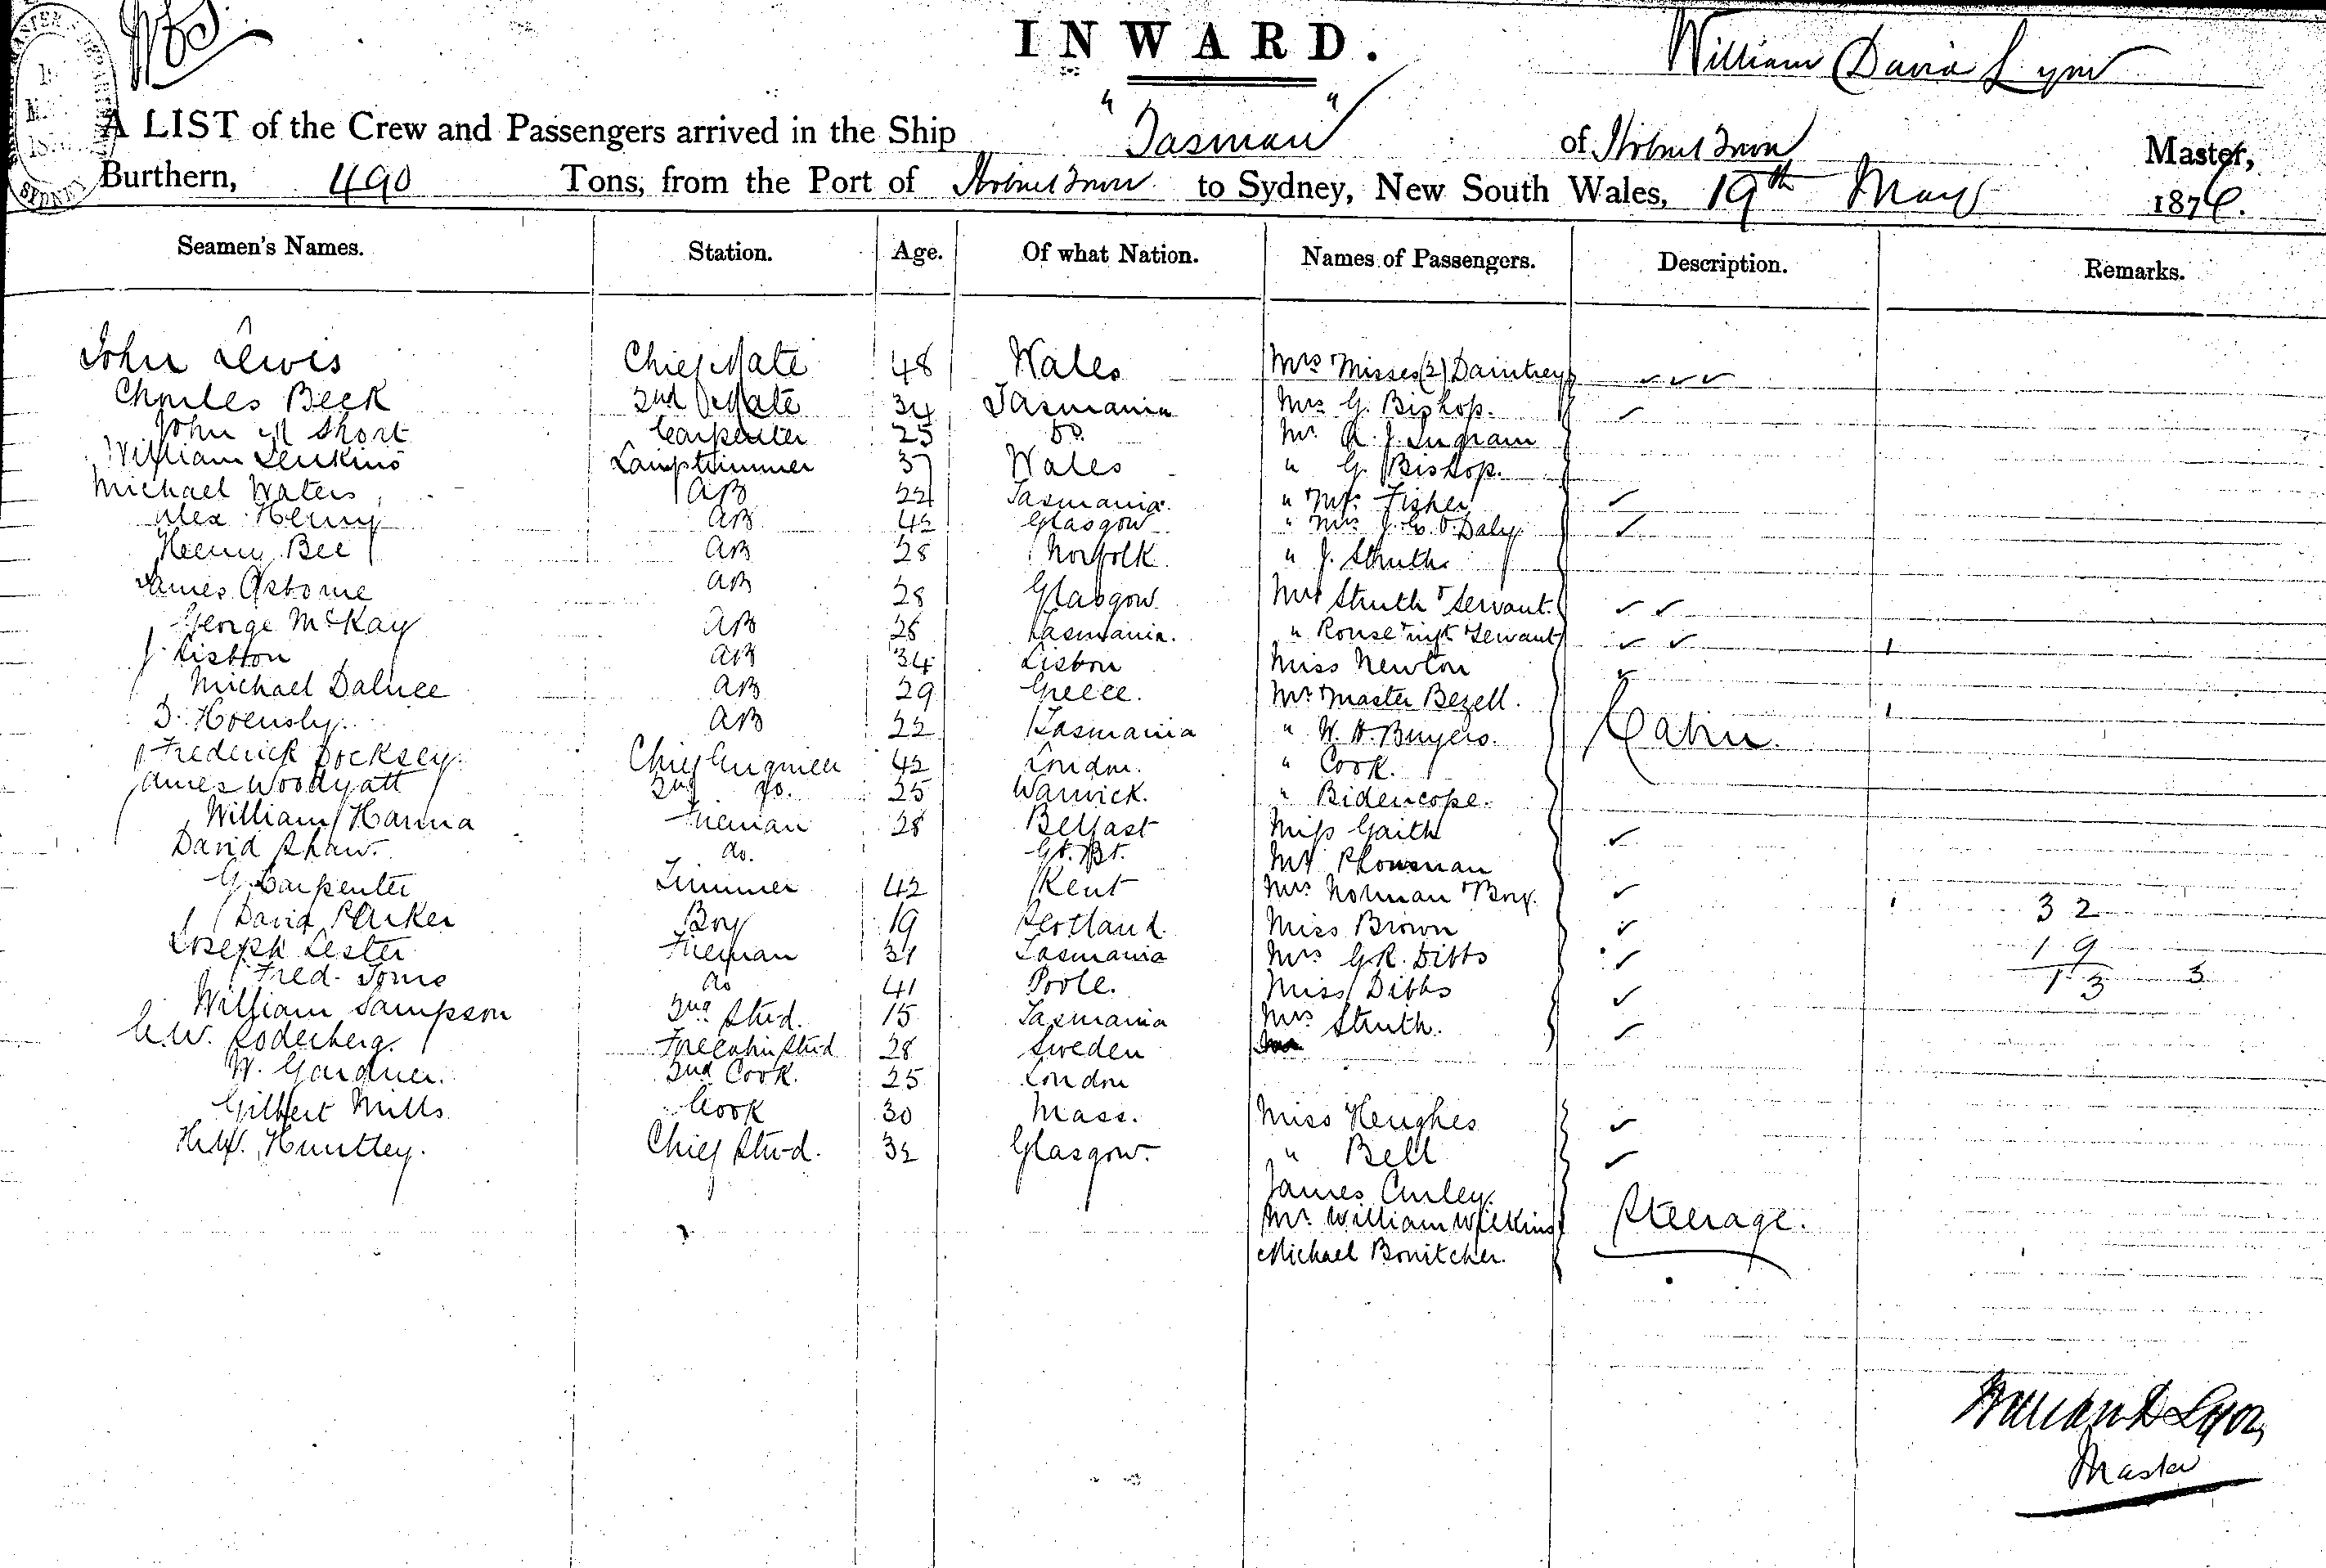 INWARD.
William David Lyon
A LIST of the Crew and Passengers arrived in the Ship "Tasman" of Hobart Town Master,
Burthern, 490 Tons, from the Port of Hobart Town to Sydney, New South Wales, 19th May 1876.
Seamen's Names. Station. Age. Of what Nation. Names of Passengers. Description. Remarks.
John Lewis Chief Mate 48 Wales Mrs & Misses (2) Daintrey
Charles Beck 2nd Mate 34 Tasmania Mrs G. Bishop.
John M Short Carpenter 25 Do. Mr. R. J. Ingram
William Jenkins Lamptrimmer 37 Wales " G. Bishop.
Michael Waters AB 22 Tasmania. " Mrs Fisher
Alex Henry AB 42 Glasgow " Mrs J. G. O. Daly
Henry Bee AB 28 Norfolk " J. Struth.
James Osborne AB 28 Glasgow Mrs Struth & Servant.
George McKay AB 25 Tasmania. " Rouse inft & Servant
J. Lisbon AB 34 Lisbon Miss Newton
Michael Daluce AB 29 Greece. Mr & Master Bezell.
D. Hornsby. AB 22 Tasmania " W. H. Buyers. Cabin.
Frederick Docksey. Chief Engineer 42 London. " Cook.
James Woodyatt 2nd do. 25 Warwick. " Bidencope.
William Hanna Fireman 28 Belfast Miss Gaith
David Shaw. do. Gt. Bt. Mr Plowman
G. Carpenter Trimmer 42 Kent Mrs Norman & Boy. 32
David Parker Boy 19 Scotland. Miss Brown 19
Joseph Lester Fireman 31 Tasmania Mrs G.R. Dibbs 13 3
Fred Toms do 41 Poole. Miss Dibbs
William Sampson 2nd Stwd. 15 Tasmania Mrs Struth.
C.W. Soderberg. Forecabin Stwd 28 Sweden
W. Gardner. 2nd Cook. 25 London
Gilbert Mills Cook 30 Mass. Miss Hughes
H.W. Huntley. Chief Stwd. 32 Glasgow. " Bell
James Curley.
Mr. William Wilkins Steerage.
Michael Bonitcher.
William D Lyon
Master
SYDNEY